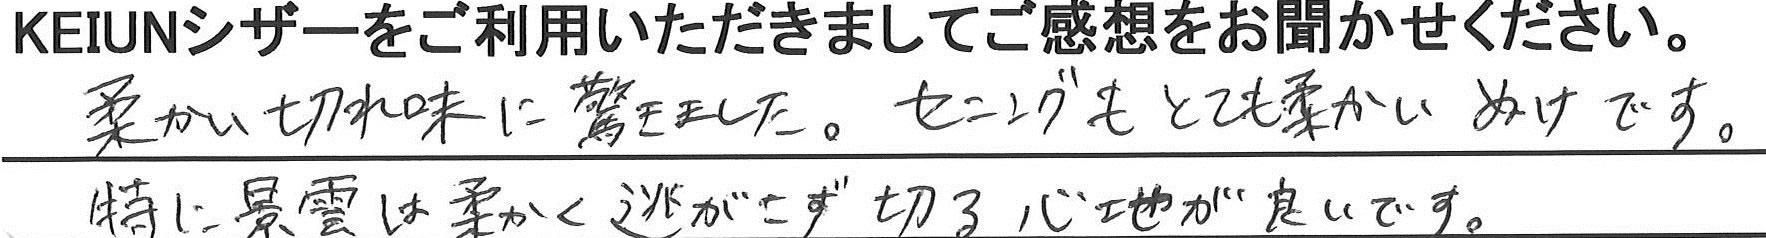 KEIUNシザーをご利用いただきましてご感想をお聞かせください。
柔かい切れ味に驚きました。セニングもとても柔かいぬけです。
特に景雲は柔かく逃がさず切る心地が良いです。